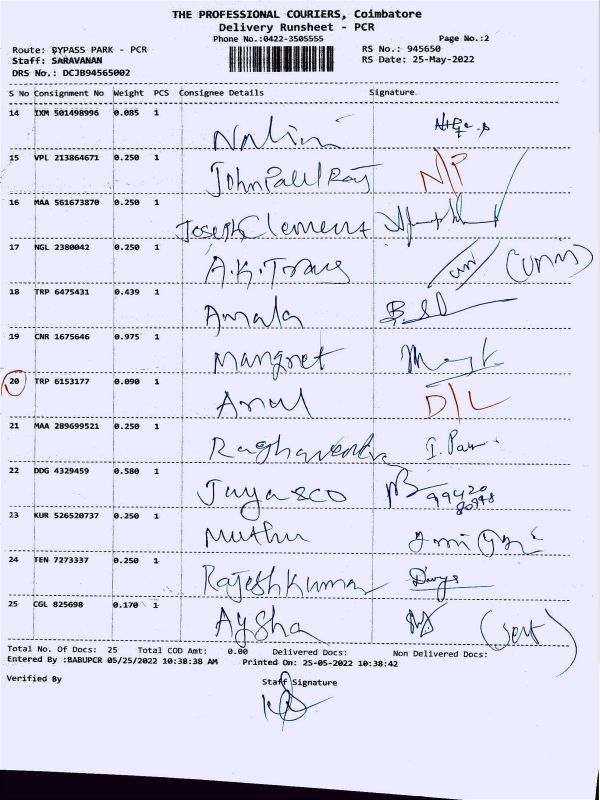 THE PROFESSIONAL COURIERS, Coimbatore
Delivery Runsheet - PCR
Phone No.:0422-3505555 Page No.:2
Route: BYPASS PARK - PCR RS No.: 945650
Staff: SARAVANAN RS Date: 25-May-2022
DRS No.: DCJB94565002
S No Consignment No Weight PCS Consignee Details Signature
14 IXM 501498996 0.085 1 Nalini
15 VPL 213864671 0.250 1 John Paul Raj N/P
16 MAA 561673870 0.250 1 Joseph Clement
17 NGL 2380042 0.250 1 A.K. Trans
18 TRP 6475431 0.439 1 Amala
19 CNR 1675646 0.975 1 Mangret
20 TRP 6153177 0.090 1 Arul D/L
21 MAA 289699521 0.250 1 Raghavendra
22 DDG 4329459 0.580 1 Jayasco 99420
23 KUR 526520737 0.250 1 Muthu
24 TEN 7273337 0.250 1 Rajesh Kumar
25 CGL 825698 0.170 1 Aysha
Total No. Of Docs: 25 Total COD Amt: 0.00 Delivered Docs: Non Delivered Docs:
Entered By :BABUPCR 05/25/2022 10:38:38 AM Printed On: 25-05-2022 10:38:42
Verified By Staff Signature